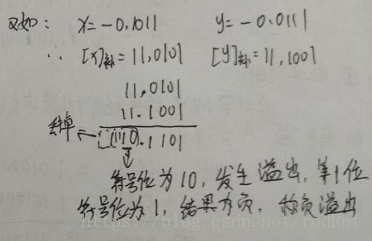 又如： x=-0.1011 y=-0.0111
∴ [x]补=11,0101 [y]补=11,1001
11,0101
11.1001
丢弃← (1)10.1101
符号位为10，发生溢出，第1位
符号位为1，结果为负，称负溢出